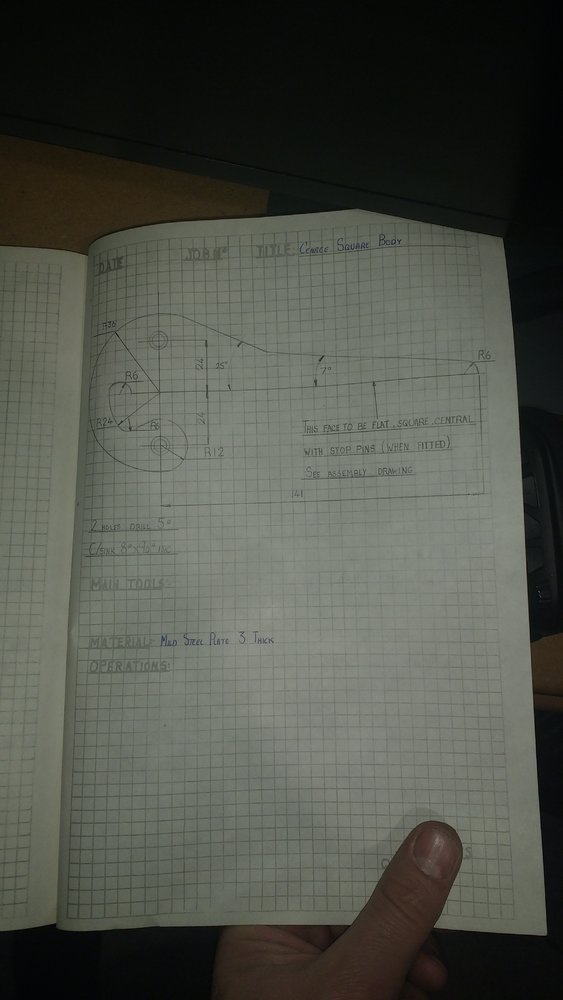 DATE JOB Nº TITLE: CENTRE SQUARE BODY
R36
24
25°
R6
7°
R6
R24
R6
24
R12
THIS FACE TO BE FLAT, SQUARE, CENTRAL
WITH STOP PINS (WHEN FITTED)
SEE ASSEMBLY DRAWING
141
2 HOLES DRILL 5ø
C/SINK 8ø x 90° INC
MAIN TOOLS:
MATERIAL: MILD STEEL PLATE 3 THICK
OPERATIONS: